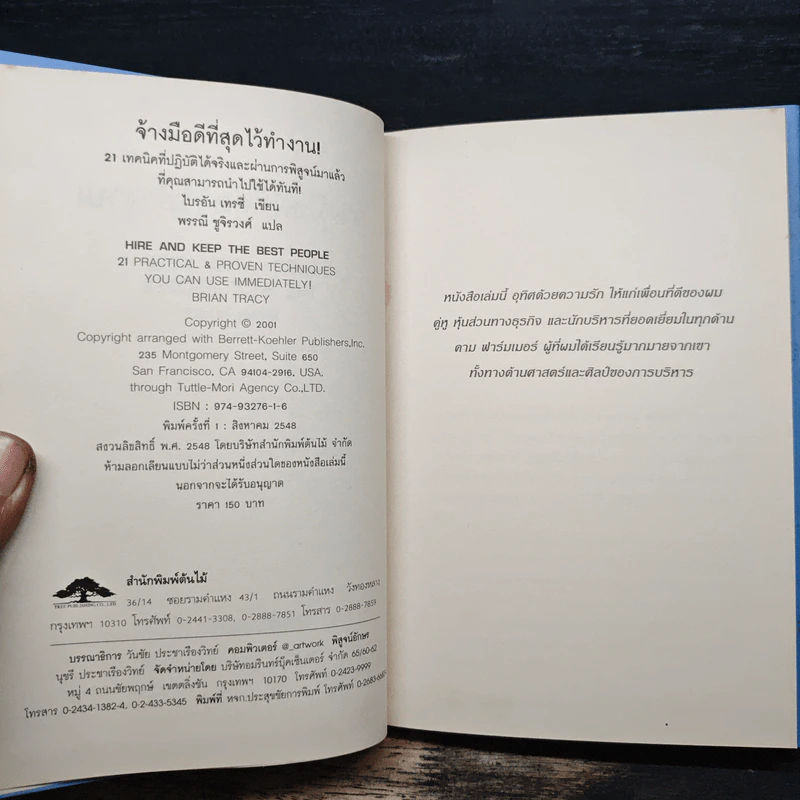 จ้างมือดีที่สุดไว้ทำงาน!
21 เทคนิคที่ปฏิบัติได้จริงและผ่านการพิสูจน์มาแล้ว
ที่คุณสามารถนำไปใช้ได้ทันที!
ไบรอัน เทรซี่ เขียน
พรรณี ชูจิรวงศ์ แปล
HIRE AND KEEP THE BEST PEOPLE
21 PRACTICAL & PROVEN TECHNIQUES
YOU CAN USE IMMEDIATELY!
BRIAN TRACY
Copyright © 2001
Copyright arranged with Berrett-Koehler Publishers,Inc.
235 Montgomery Street, Suite 650
San Francisco, CA 94104-2916, USA.
through Tuttle-Mori Agency Co.,LTD.
ISBN : 974-93276-1-6
พิมพ์ครั้งที่ 1 : สิงหาคม 2548
สงวนลิขสิทธิ์ พ.ศ. 2548 โดยบริษัทสำนักพิมพ์ต้นไม้ จำกัด
ห้ามลอกเลียนแบบไม่ว่าส่วนหนึ่งส่วนใดของหนังสือเล่มนี้
นอกจากจะได้รับอนุญาต
ราคา 150 บาท
สำนักพิมพ์ต้นไม้
TREE PUBLISHING CO., LTD.
36/14 ซอยรามคำแหง 43/1 ถนนรามคำแหง วังทองหลาง
กรุงเทพฯ 10310 โทรศัพท์ 0-2441-3308, 0-2888-7851 โทรสาร 0-2888-7859
บรรณาธิการ วันชัย ประชาเรืองวิทย์ คอมพิวเตอร์ @_artwork พิสูจน์อักษร
นุชรี ประชาเรืองวิทย์ จัดจำหน่ายโดย บริษัทอมรินทร์บุ๊คเซ็นเตอร์ จำกัด 65/60-62
หมู่ 4 ถนนชัยพฤกษ์ เขตตลิ่งชัน กรุงเทพฯ 10170 โทรศัพท์ 0-2423-9999
โทรสาร 0-2434-1382-4, 0-2-433-5345 พิมพ์ที่ หจก.ประสุขชัยการพิมพ์ โทรศัพท์
หนังสือเล่มนี้ อุทิศด้วยความรัก ให้แก่เพื่อนที่ดีของผม
คู่หู หุ้นส่วนทางธุรกิจ และนักบริหารที่ยอดเยี่ยมในทุกด้าน
คาม ฟาร์มเมอร์ ผู้ที่ผมได้เรียนรู้มากมายจากเขา
ทั้งทางด้านศาสตร์และศิลป์ของการบริหาร